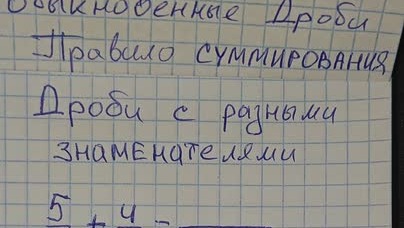 Обыкновенные Дроби
Правило суммирования
Дроби с разными
знаменателями
5 + 4 =